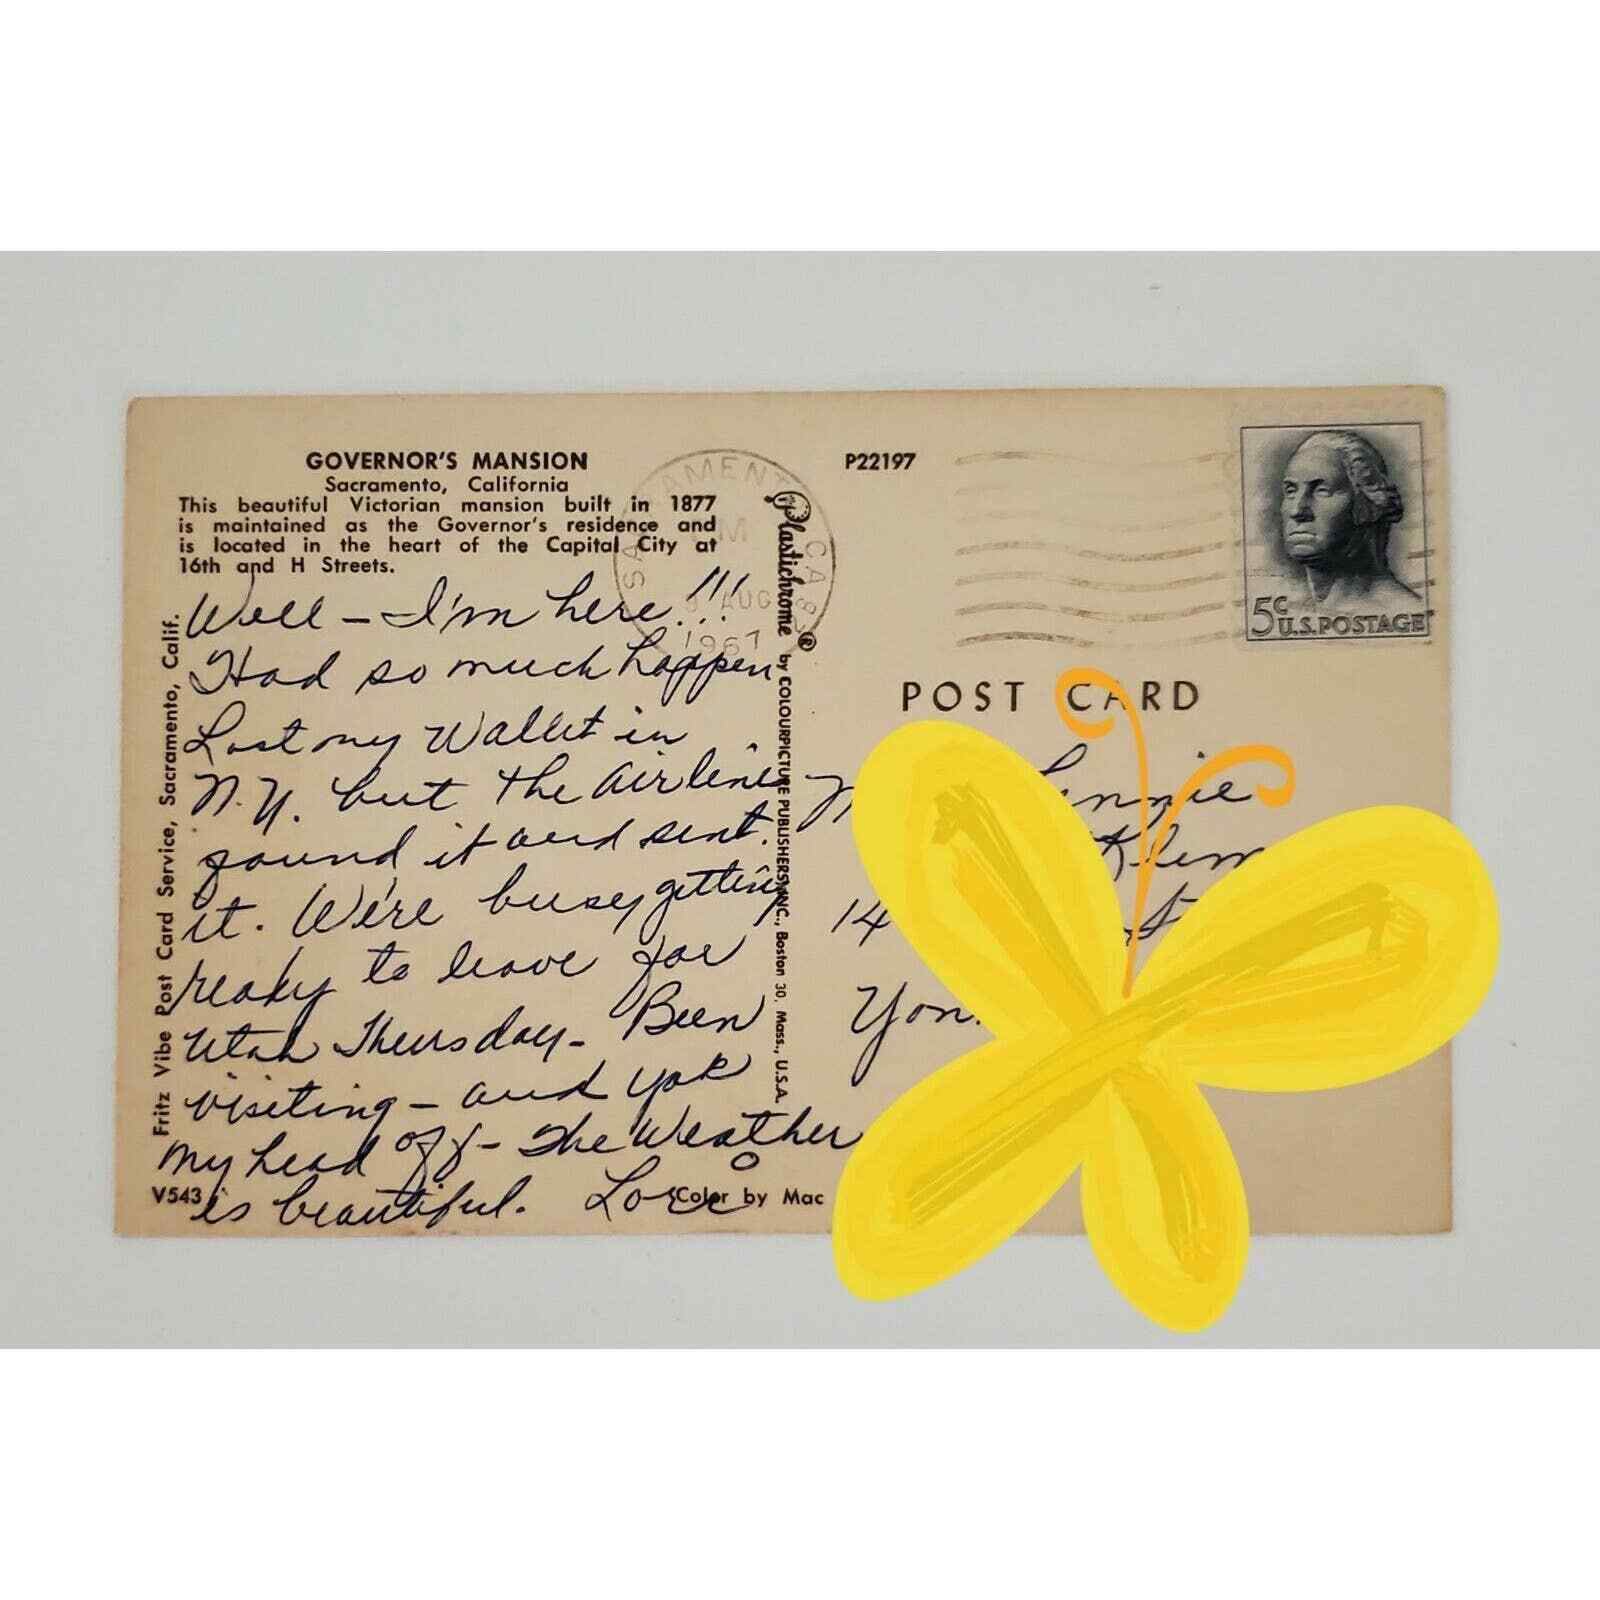 GOVERNOR'S MANSION
Sacramento, California
This beautiful Victorian mansion built in 1877
is maintained as the Governor's residence and
is located in the heart of the Capital City at
16th and H Streets.
Well – I'm here!!!
Had so much happen
Lost my Wallet in
N.Y. but the airlines
found it and sent
it. We're busy getting
ready to leave for
Utah Thursday – Been
visiting – and yak
my head off – The Weather
is beautiful. Love
V543
Color by Mac
Fritz Vibe Post Card Service, Sacramento, Calif.
Plastichrome® by COLOURPICTURE PUBLISHERS, INC., Boston 30, Mass., U.S.A.
AUG
1967
P22197
5¢ U.S. POSTAGE
POST CARD
14